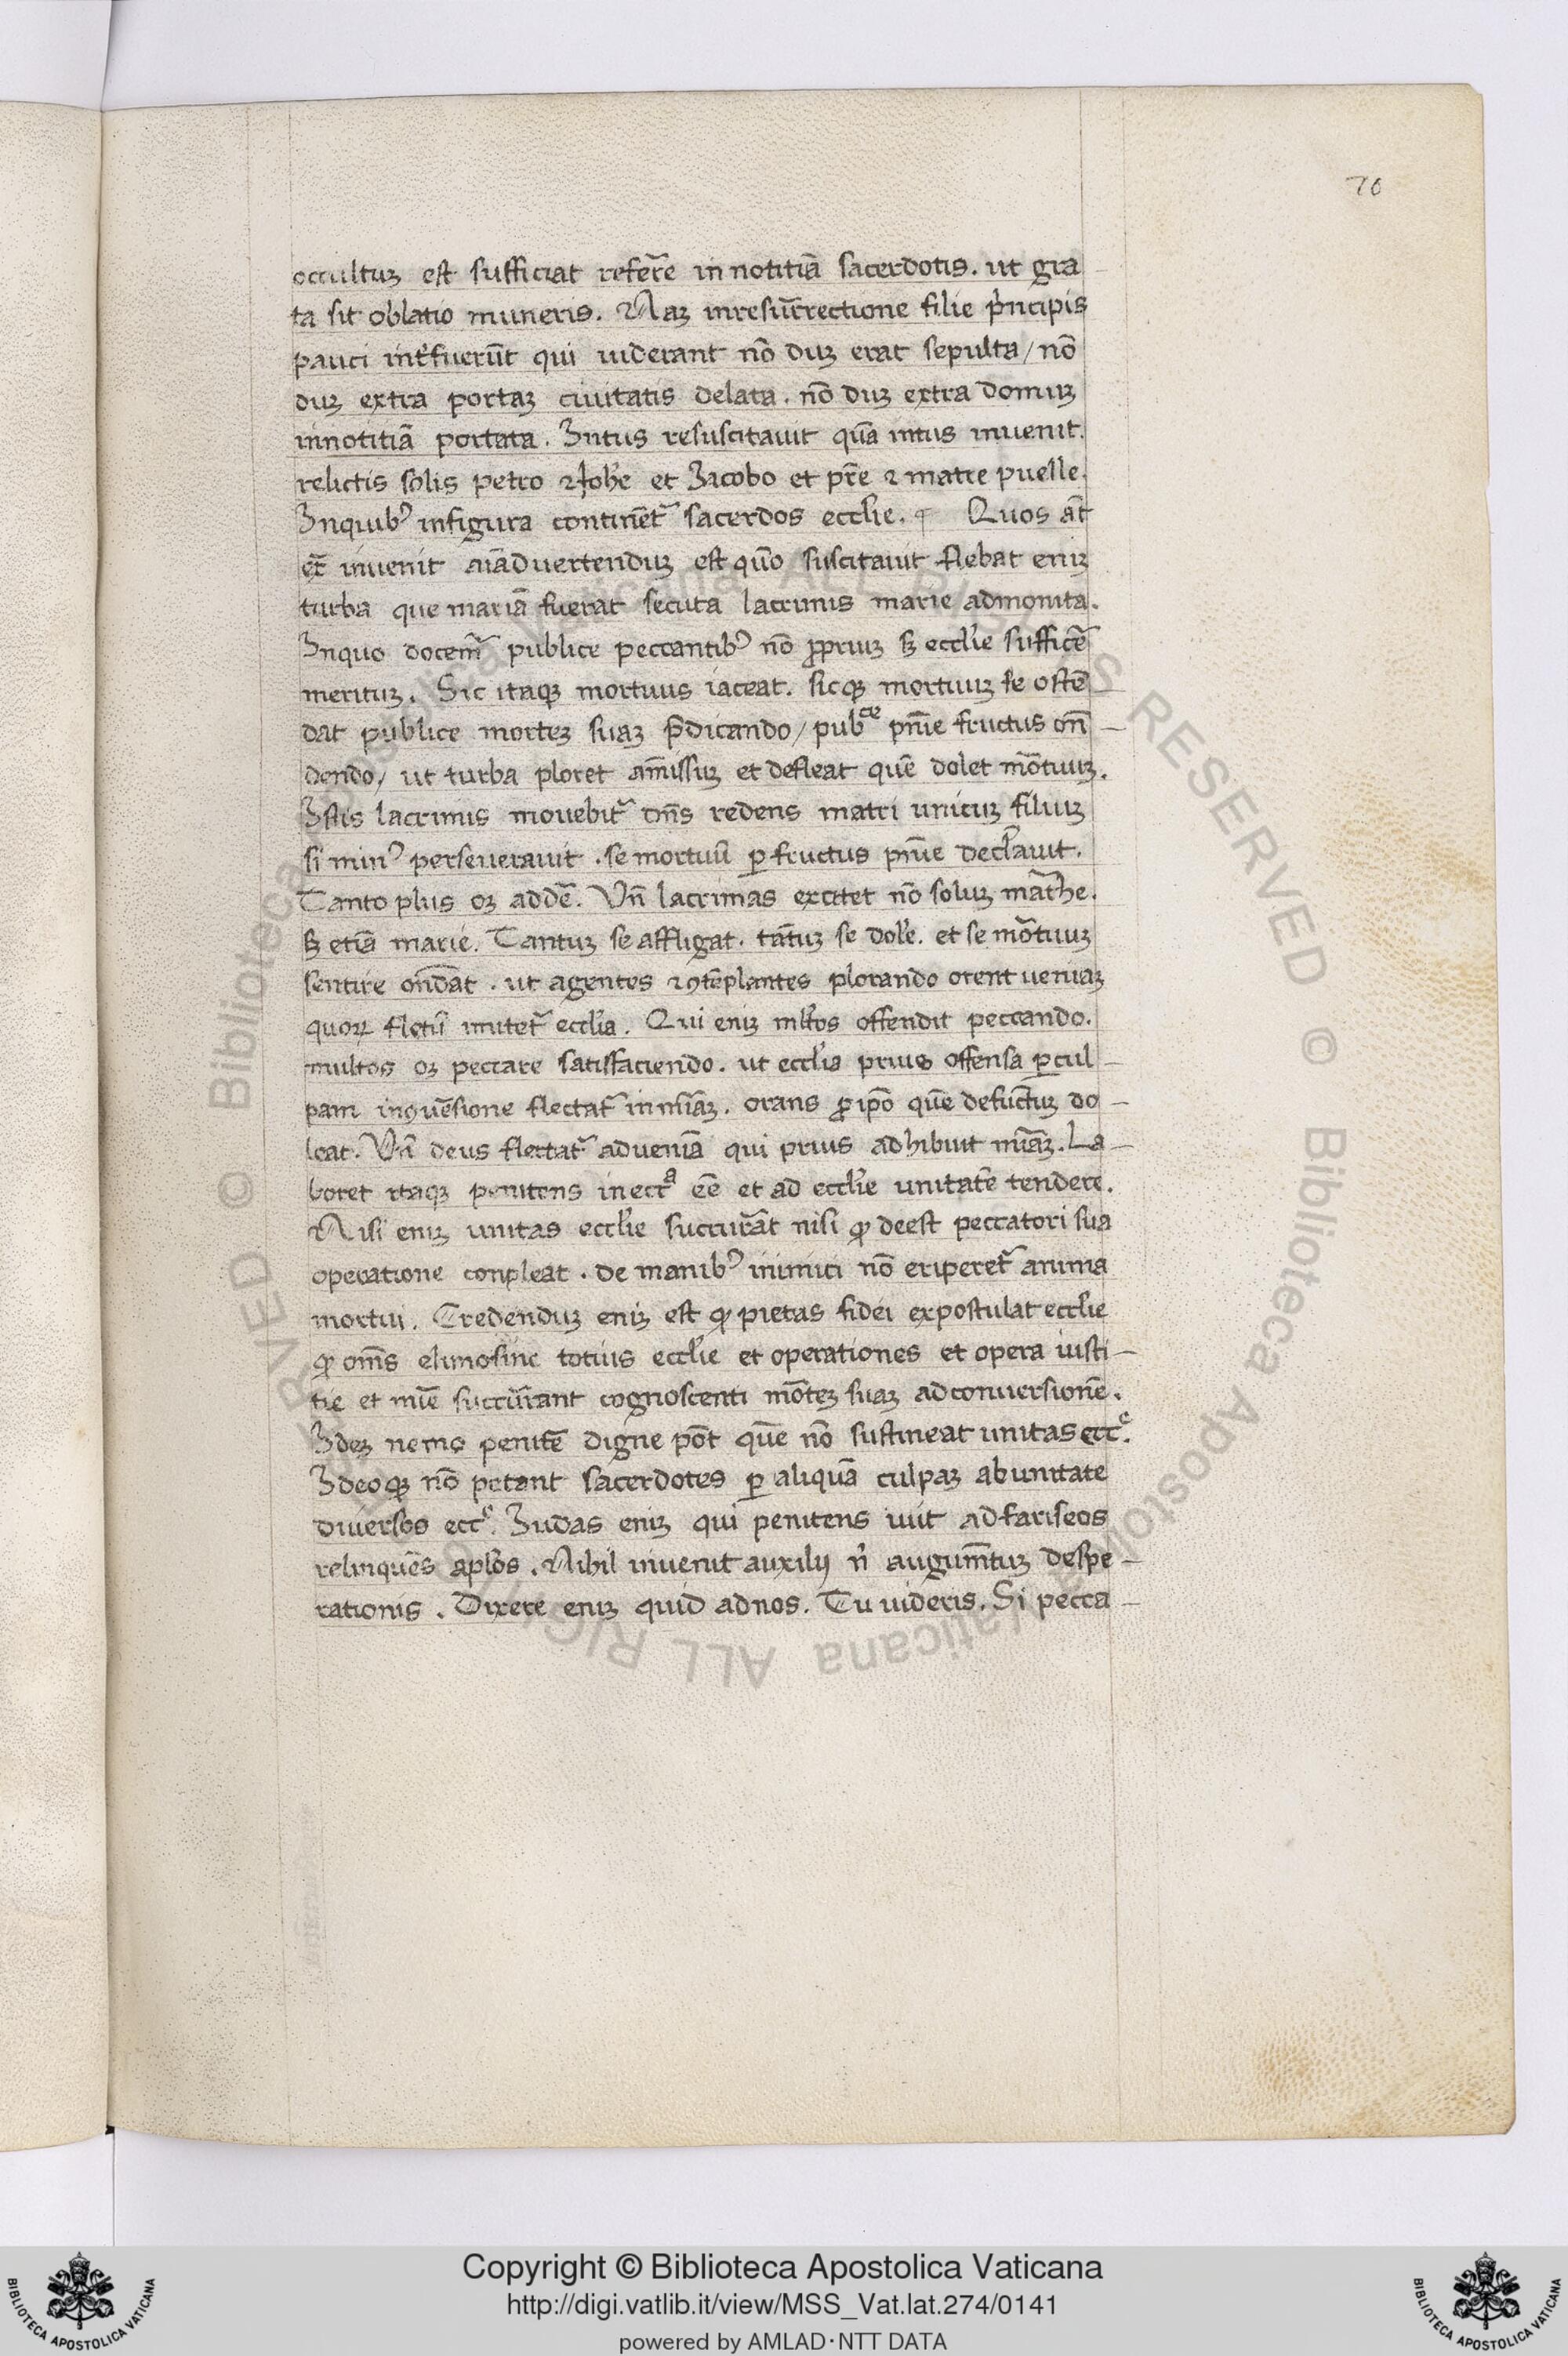 70
occultuꝫ est sufficiat refer̃e in notitiã sacerdotis. ut gra
ta sit oblatio muneris. Naꝫ inresur̃rectione filie pͥncipis
pauci int̃fuerũt qui uiderant nõ duꝫ erat sepulta/ nõ
duꝫ extra portaꝫ ciuitatis delata. nõ duꝫ extra domuꝫ
innotitiã portata. Intus resuscitauit quã intus inuenit.
relictis solis petro ⁊ Ioh̃e et Iacobo et pr̃e ⁊ matre puelle.
Inquibꝰ infigura continet̃ sacerdos eccl̃ie. Quos aũt
et̃ inuenit aiãduertenduꝫ est quõ suscitauit flebat eniꝫ
turba que mariã fuerat secuta lacrimis marie admonita.
Inquo docem̃ publice peccantibꝰ nõ ꝓpriuꝫ sꝫ eccl̃ie sufficẽ
merituꝫ. Sic itaqꝫ mortuus iaceat. sicqꝫ mortuuꝫ se ostẽ
dat publice morteꝫ suaꝫ p̃dicando/ pubᶜᵉ pñie fructus oñ
dendo/ ut turba ploret am̃issuꝫ et defleat quẽ dolet mõtuuꝫ.
Istis lacrimis mouebit̃ dñs redens matri unicuꝫ filiuꝫ
si minꝰ perseuerauit. se mortuũ ꝑ fructus pñie decl̃auit.
Tanto plus oꝫ addẽ. Uñ lacrimas excitet nõ soluꝫ mãthe.
sꝫ etiã marie. Tantuꝫ se affligat. tãtuꝫ se dol̃e. et se mõtuuꝫ
sentire ond̃at. ut agentes ⁊ ꝯtẽplantes plorando orent ueniaꝫ
quoꝝ fletũ imitet̃ eccl̃ia. Qui eniꝫ ml̃tos offendit peccando.
multos oꝫ peccare satisfaciendo. ut eccl̃ia prius offensa ꝑ cul
pam inꝯuẽsione flectat̃ in mĩaꝫ. orans ꝓ ip̃o quẽ defuñctuꝫ do
leat. Uñ deus flectat̃ adueniã qui prius adhibuit mĩaꝫ. La
boret itaqꝫ penitens in eccᵃ eẽ et ad eccl̃ie unitatẽ tendere.
Nisi eniꝫ unitas eccl̃ie succur̃at nisi ꝙ deest peccatori sua
operatione conpleat. de manibꝰ inimici nõ eriperet̃ anima
mortui. Credenduꝫ eniꝫ est ꝙ pietas fidei expostulat eccl̃ie
ꝙ om̃s elimosine totius eccl̃ie et operationes et opera iusti
tie et mĩe succur̃rant cognoscenti mõteꝫ suaꝫ ad conuersionẽ.
Ideꝫ nemo penitẽ digne põt quẽ nõ sustineat unitas eccᵉ.
Ideoqꝫ nõ petant sacerdotes ꝑ aliquã culpaꝫ ab unitate
diuersos eccᵉ. Iudas eniꝫ qui penitens iuit ad fariseos
relinquẽs apl̃os. Nihil inuenit auxilij nͥ augum̃tuꝫ despe
rationis. Dixere eniꝫ quid adnos. Tu uideris. Si pecca
Copyright © Biblioteca Apostolica Vaticana
http://digi.vatlib.it/view/MSS_Vat.lat.274/0141
powered by AMLAD·NTT DATA
BIBLIOTECA APOSTOLICA VATICANA
BIBLIOTECA APOSTOLICA VATICANA